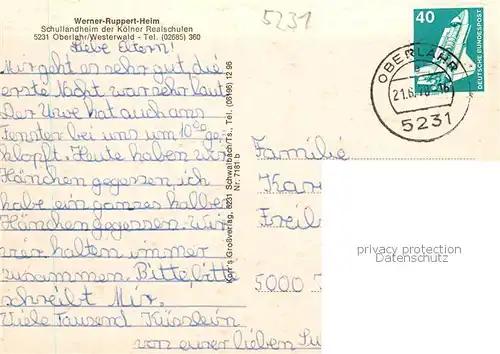 Werner-Ruppert-Heim
Schullandheim der Kölner Realschulen
5231 Oberlahr/Westerwald - Tel. (02685) 360
5231
Liebe Eltern!
Mir geht es sehr gut die
erste Nacht war sehr laut
Der Uwe hat auch ans
Fenster bei uns um 10 00 ge-
klopft. Heute haben wir
Hänchen gegessen, ich
habe ein ganzes halbes
Hänchen gegessen. Wir
vier halten immer
zusammen. Bitte bitte
schreibt Mir.
Viele Tausend Küsslein
von eurer lieben Su
Korr's Großverlag, 6231 Schwalbach/Ts., Tel. (06196) 12 96
Nr. 7181 b
40
DEUTSCHE BUNDESPOST
OBERLAHR
5231
Familie
Kar
Freili
5000
privacy protection
Datenschutz